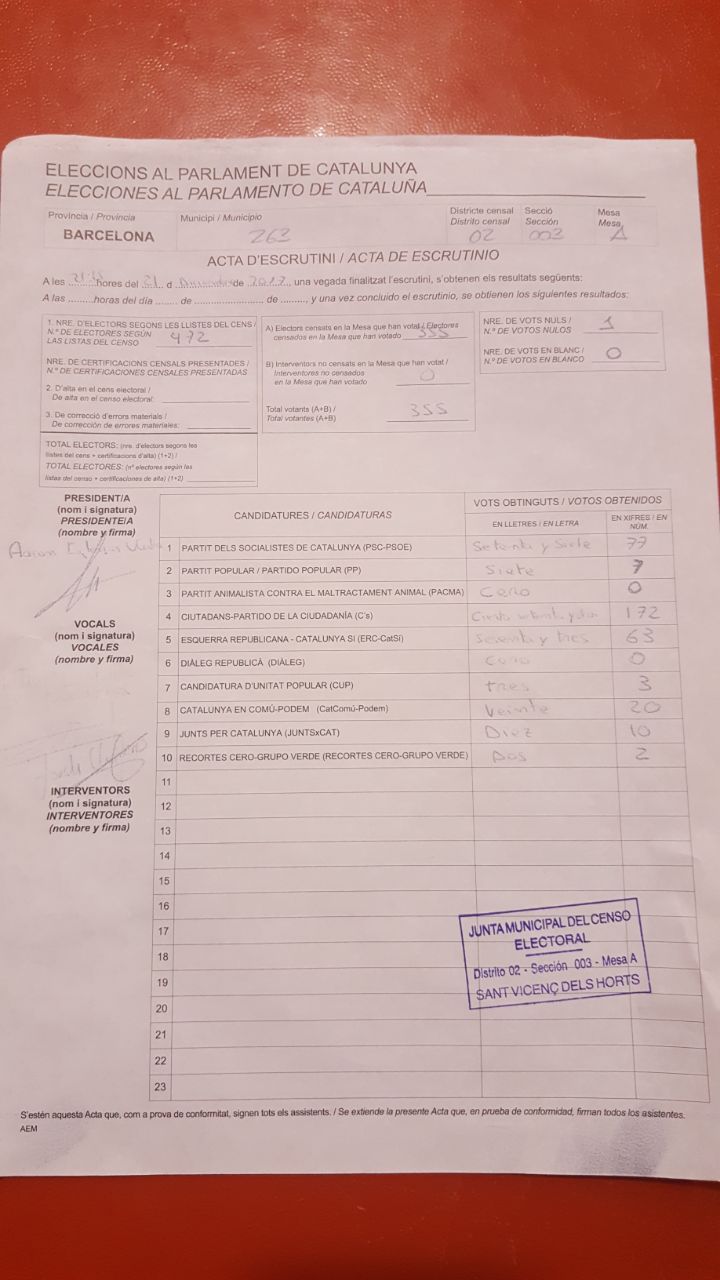 ELECCIONS AL PARLAMENT DE CATALUNYA
ELECCIONES AL PARLAMENTO DE CATALUÑA
Província / Provincia Municipi / Municipio Districte censal Secció Mesa
Distrito censal Sección Mesa
BARCELONA 263 02 003 A
ACTA D'ESCRUTINI / ACTA DE ESCRUTINIO
A les hores del 21 d de 2017, una vegada finalitzat l'escrutini, s'obtenen els resultats següents:
A las ......... horas del día ....... de ..................... de ........., y una vez concluido el escrutinio, se obtienen los siguientes resultados:
1. NRE. D'ELECTORS SEGONS LES LLISTES DEL CENS /
N.º DE ELECTORES SEGÚN
LAS LISTAS DEL CENSO 472
NRE. DE CERTIFICACIONS CENSALS PRESENTADES /
N.º DE CERTIFICACIONES CENSALES PRESENTADAS
2. D'alta en el cens electoral /
De alta en el censo electoral:
3. De correcció d'errors materials /
De corrección de errores materiales:
TOTAL ELECTORS: (nre. d'electors segons les
llistes del cens + certificacions d'alta) (1+2) /
TOTAL ELECTORES: (nº electores según las
listas del censo + certificaciones de alta) (1+2)
A) Electors censats en la Mesa que han votat / Electores
censados en la Mesa que han votado 355
B) Interventors no censats en la Mesa que han votat /
Interventores no censados
en la Mesa que han votado 0
Total votants (A+B) /
Total votantes (A+B) 355
NRE. DE VOTS NULS /
N.º DE VOTOS NULOS 1
NRE. DE VOTS EN BLANC /
N.º DE VOTOS EN BLANCO 0
PRESIDENT/A
(nom i signatura)
PRESIDENTE/A
(nombre y firma)
VOCALS
(nom i signatura)
VOCALES
(nombre y firma)
INTERVENTORS
(nom i signatura)
INTERVENTORES
(nombre y firma)
CANDIDATURES / CANDIDATURAS VOTS OBTINGUTS / VOTOS OBTENIDOS
EN LLETRES / EN LETRA EN XIFRES / EN NÚM.
1 PARTIT DELS SOCIALISTES DE CATALUNYA (PSC-PSOE) Setenta y Siete 77
2 PARTIT POPULAR / PARTIDO POPULAR (PP) Siete 7
3 PARTIT ANIMALISTA CONTRA EL MALTRACTAMENT ANIMAL (PACMA) Cero 0
4 CIUTADANS-PARTIDO DE LA CIUDADANÍA (C's) Ciento setenta y dos 172
5 ESQUERRA REPUBLICANA - CATALUNYA SI (ERC-CatSí) Sesenta y tres 63
6 DIÀLEG REPUBLICÀ (DIÀLEG) Cero 0
7 CANDIDATURA D'UNITAT POPULAR (CUP) tres 3
8 CATALUNYA EN COMÚ-PODEM (CatComú-Podem) Veinte 20
9 JUNTS PER CATALUNYA (JUNTSxCAT) Diez 10
10 RECORTES CERO-GRUPO VERDE (RECORTES CERO-GRUPO VERDE) Dos 2
11
12
13
14
15
16
17
18
19
20
21
22
23
JUNTA MUNICIPAL DEL CENSO
ELECTORAL
Distrito 02 - Sección 003 - Mesa A
SANT VICENÇ DELS HORTS
S'estén aquesta Acta que, com a prova de conformitat, signen tots els assistents. / Se extiende la presente Acta que, en prueba de conformidad, firman todos los asistentes.
AEM